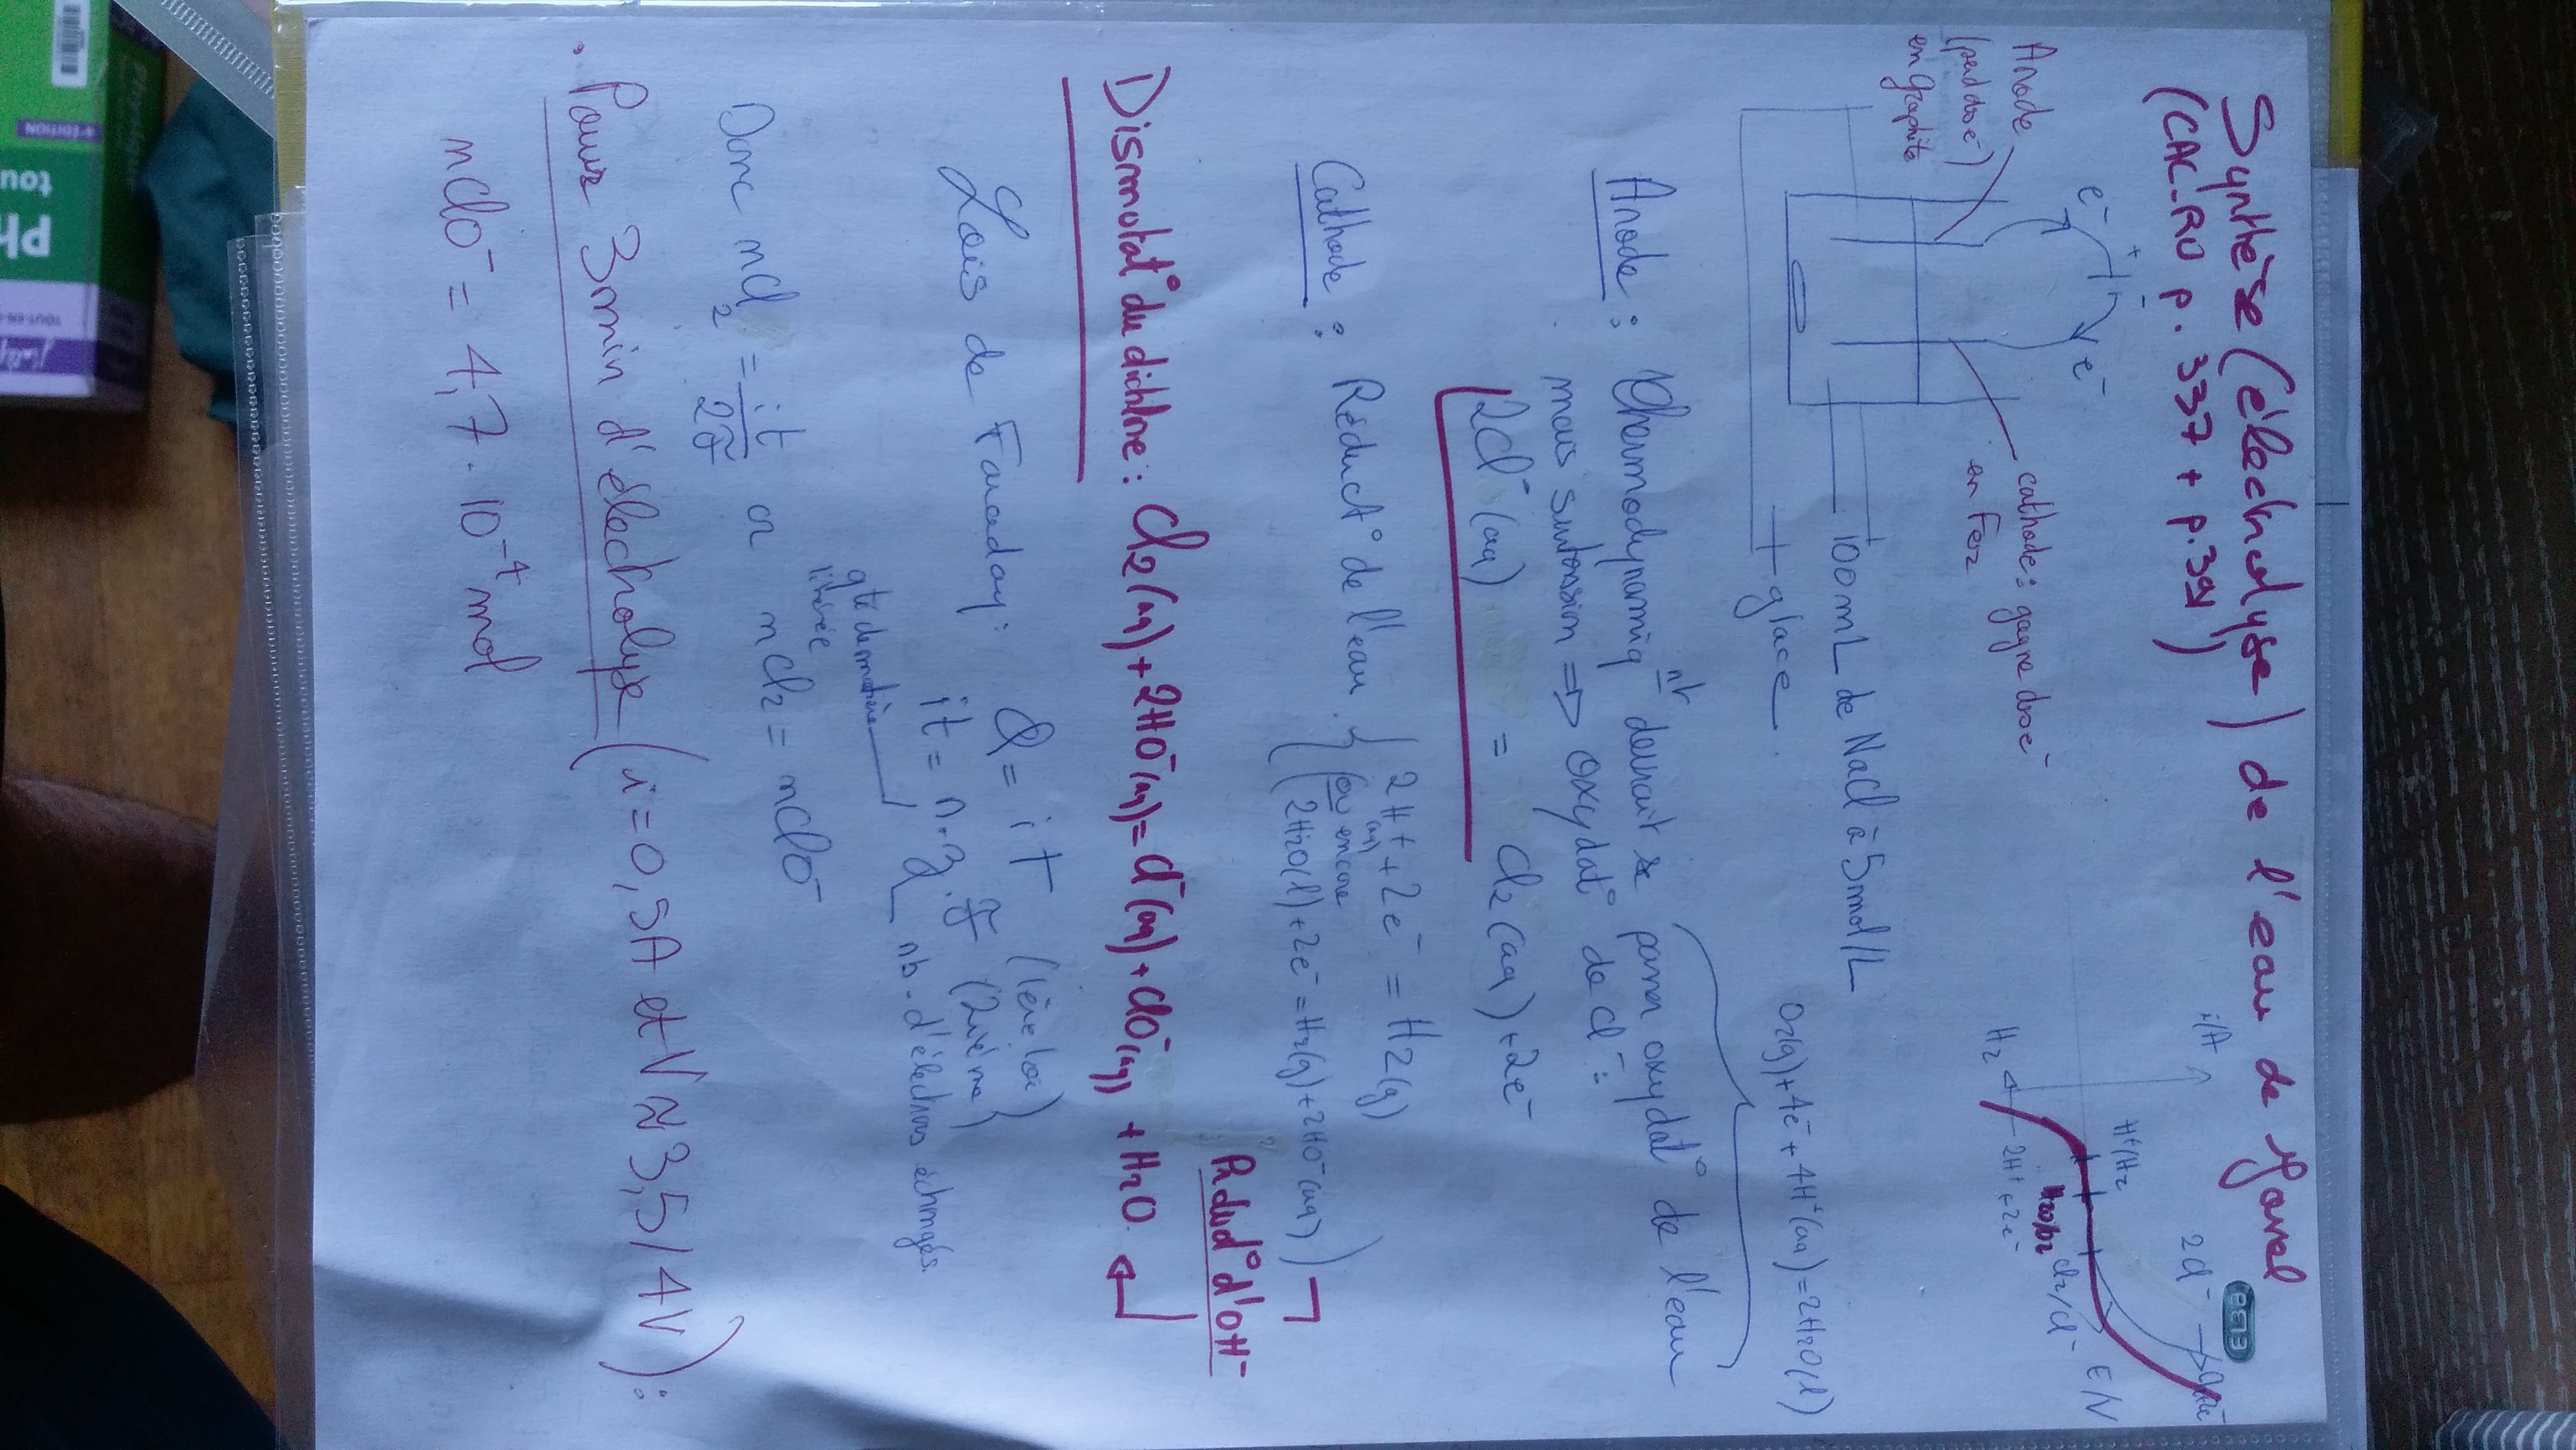 Synthèse (électrolyse) de l'eau de Javel
(CAC_RO p. 337 + p.391)
Anode
(perd des e-)
en graphite
e-
+
-
e-
cathode : gagne des e-
en Fer
100mL de NaCl à 5mol/L
+ glace.
i/A
H2
2H+ + 2e-
H+/H2
H2O/O2
Cl2/Cl-
2Cl-
E/V
O2(g) + 4e- + 4H+(aq) = 2H2O(l)
Anode : Thermodynamiqnt devrait se passer oxydat° de l'eau
mais surtension => oxydat° de Cl- :
2Cl-(aq) = Cl2(aq) + 2e-
Cathode : Réduct° de l'eau { 2H+(aq) + 2e- = H2(g)
(ou encore
2H2O(l) + 2e- = H2(g) + 2HO-(aq))
Product° d'OH-
Dismutat° du dichlore : Cl2(aq) + 2HO-(aq) = Cl-(aq) + ClO-(aq) + H2O.
Lois de Faraday : Q = it (1ère loi)
it = n.z.F (2ième)
qté de matière
libérée
nb. d'électrons échangés.
Donc nCl2 = it/2F or nCl2 = nClO-
• Pour 3min d'électrolyse (i = 0,5A et V ≈ 3,5/4V) :
nClO- = 4,7 . 10-4 mol
4e ÉDITION
Ph
tou